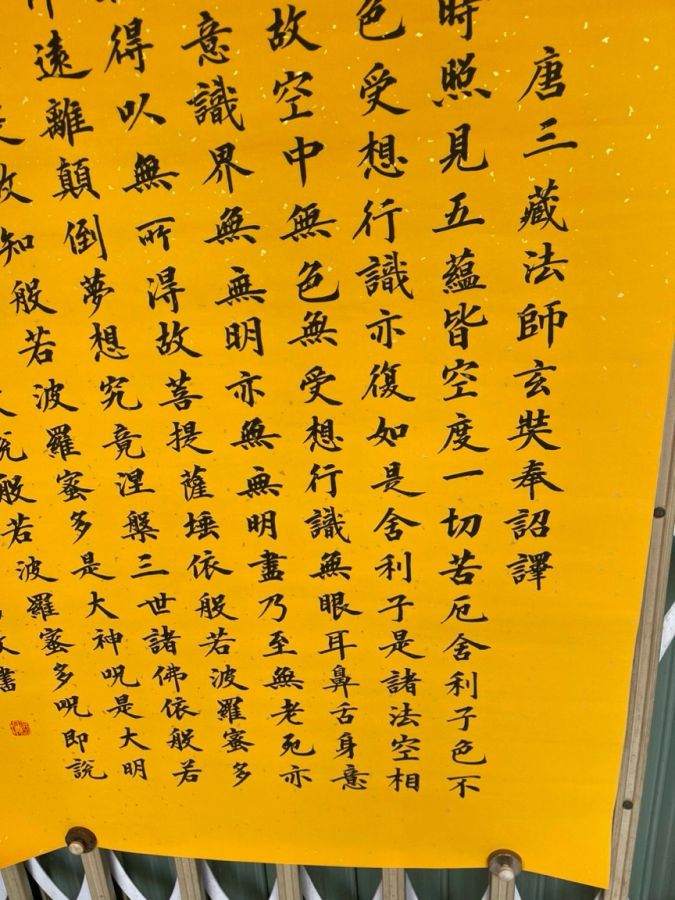 唐三藏法師玄奘奉詔譯
時照見五蘊皆空度一切苦厄舍利子色不
色受想行識亦復如是舍利子是諸法空相
故空中無色無受想行識無眼耳鼻舌身意
意識界無無明亦無無明盡乃至無老死亦
得以無所得故菩提薩埵依般若波羅蜜多
遠離顛倒夢想究竟涅槃三世諸佛依般若
故知般若波羅蜜多是大神呪是大明
說般若波羅蜜多呪即說
書